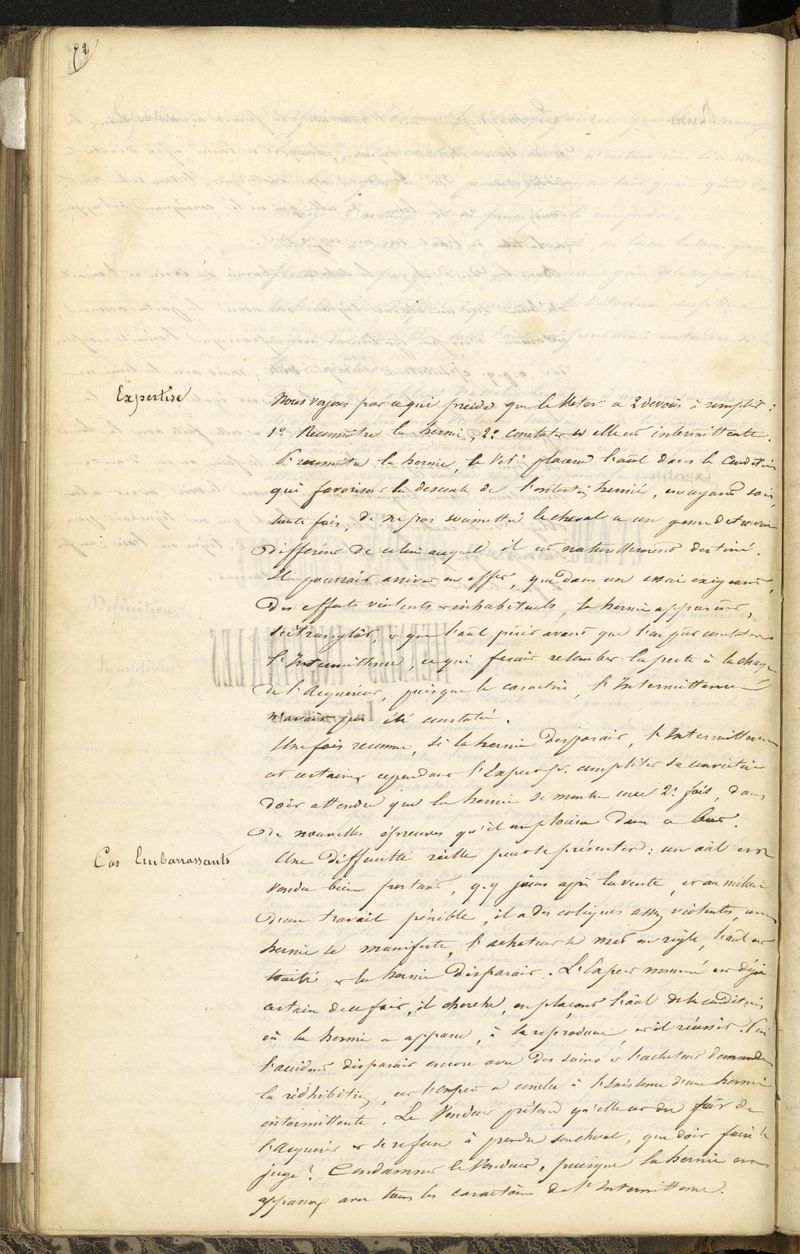 72
Expertise
Nous voyons par ce qui précède que le Véter. a 2 devoirs à remplir :
1° Reconnaître la hernie, 2° constater si elle est intermittente.
Pr reconnaître la hernie, le Vétr placera l'aâl dans la condition
qui favorise la descente de l'intestin hernié, en ayant soin,
toute fois, de ne pas soumettre le cheval à un genre de travail
différent de celui auquel il est naturellement destiné.
Il pourrait arriver en effet, que dans un essai exigeant,
des efforts violents & inhabituels, la hernie apparaisse,
s'étranglât, & que l'aâl périt avant que l'on pût constater
l'Intermittence, ce qui ferait retomber la perte à la charge
de l'Acquéreur, puisque le caractère, l'Intermittence
n'avait pas été constaté.
Une fois reconnue, si la hernie disparait, l'Intermittence
est certaine, cependant l'Expert pr. compléter sa conviction
doit attendre que la hernie se montre une 2e fois, dans
de nouvelles épreuves qu'il emploiera dans ce but.
Cas Embarrassants
Une difficulté réelle peut se présenter : un aâl est
vendu bien portant, q.q jours après la vente, et au milieu
d'un travail pénible, il a des coliques assez violentes, une
hernie se manifeste, l'acheteur se met en règle, l'aâl est
traité & la hernie disparait. L'Expert nommé est déjà
certain de ce fait, il cherche, en plaçant l'aâl ds la condition
où la hernie a apparu, à la reproduire, et il réussit.
l'accident disparait encore avec des soins & l'acheteur demande
la rédhibition, et l'expert a conclu à l'existence d'une hernie
intermittente. Le Vendeur prétend qu'elle est du fait de
l'Acquéreur & se refuse à prendre son cheval, que doit faire le
juge ? Condamner le Vendeur, puisque la hernie
avec tous les caractères de l'Intermittence.